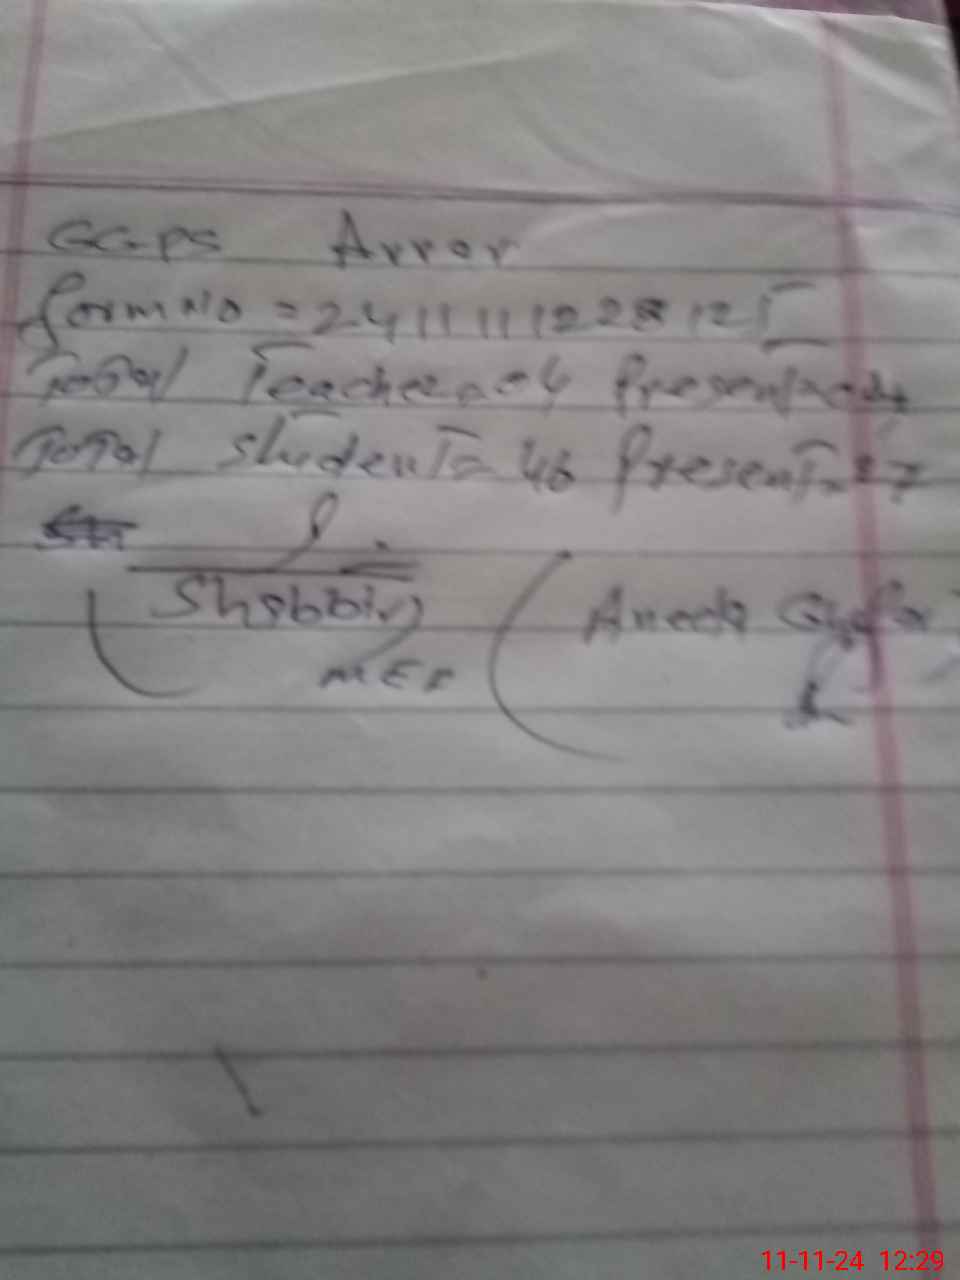 GGPS Arror
form No = 2411111228121
Total Teacher = 04 Present = 04
Total student = 46 Present = 27
Shabbir
MEA
Aneela
11-11-24 12:29